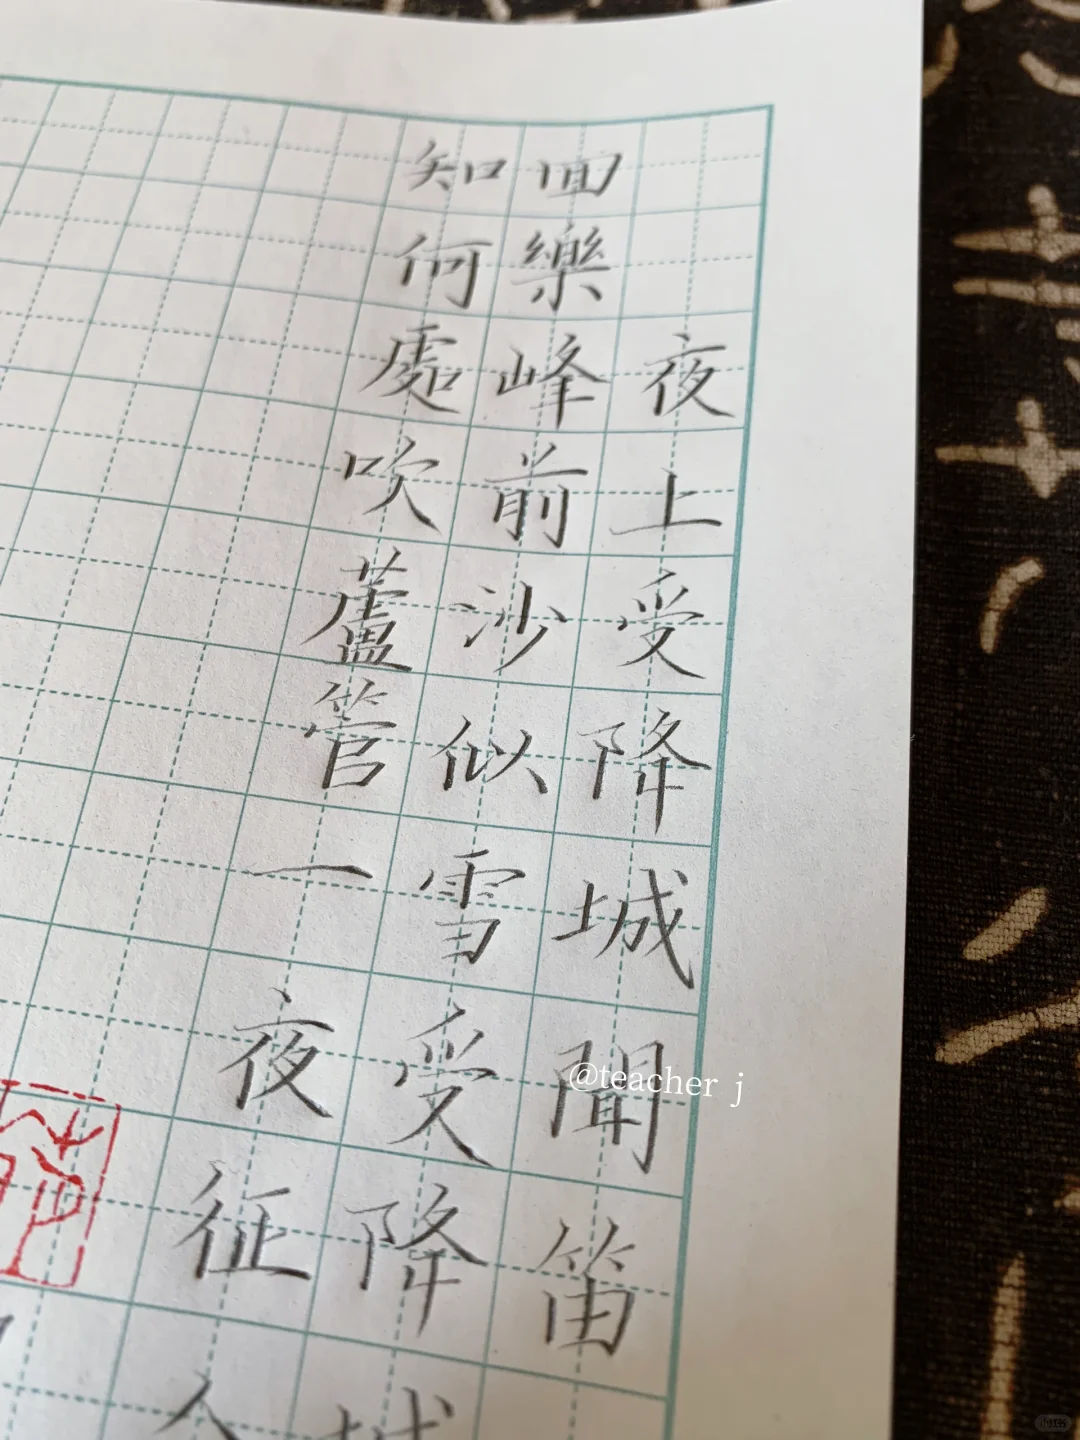 夜上受降城聞笛
回樂峰前沙似雪受降城
知何處吹蘆管一夜征人
@teacher j
小红书